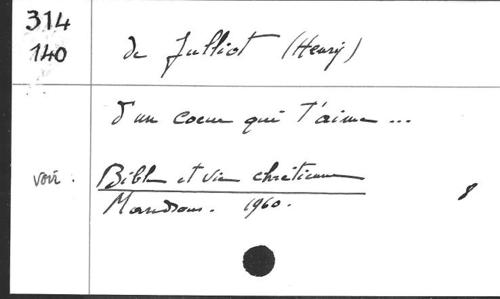 314
140
de Julliot (Henry)
d'un coeur qui t'aime ...
voir.
Bible et vie chrétienne
Maredsous. 1960.
8